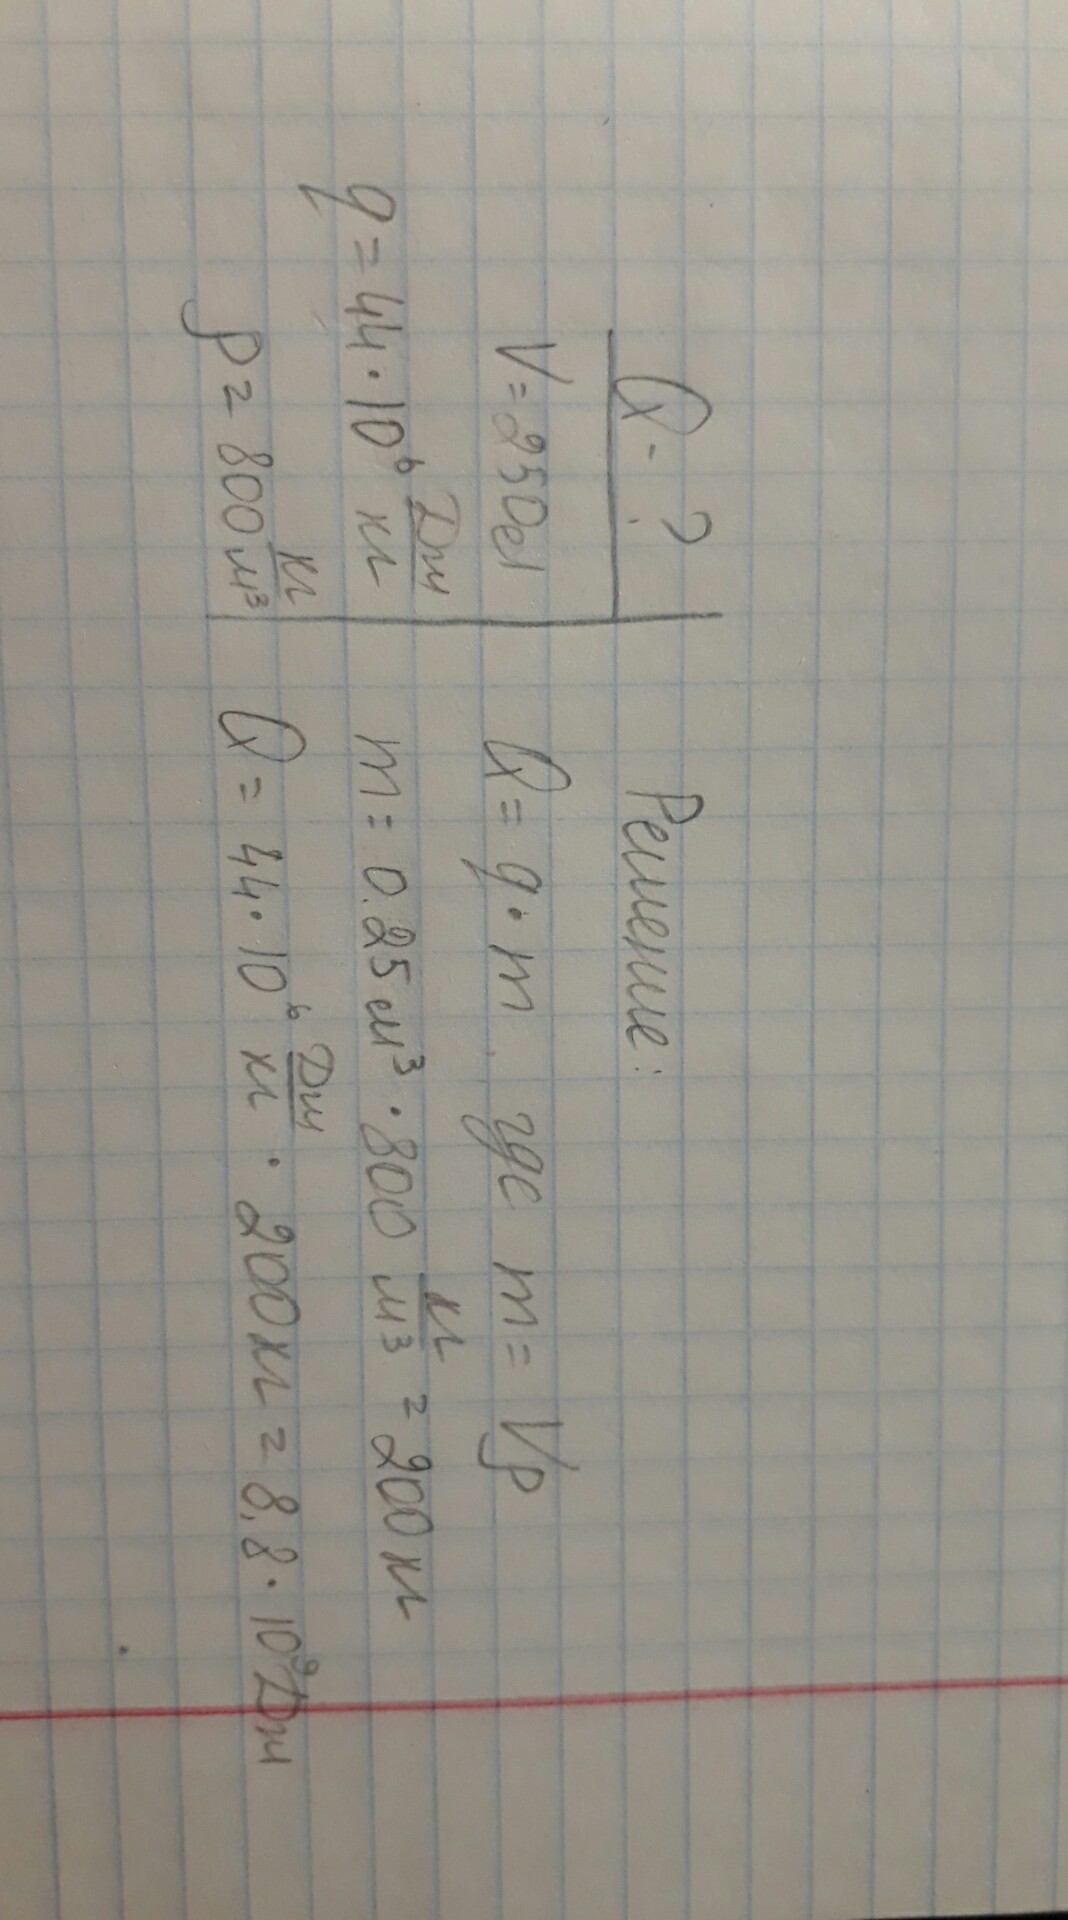 Q - ?
V = 250л
q = 44·10⁶ Дж/кг
ρ = 800 кг/м³
Решение:
Q = q·m, где m = Vρ
m = 0.25 м³ · 800 кг/м³ = 200 кг
Q = 44·10⁶ Дж/кг · 200 кг = 8,8·10⁹ Дж